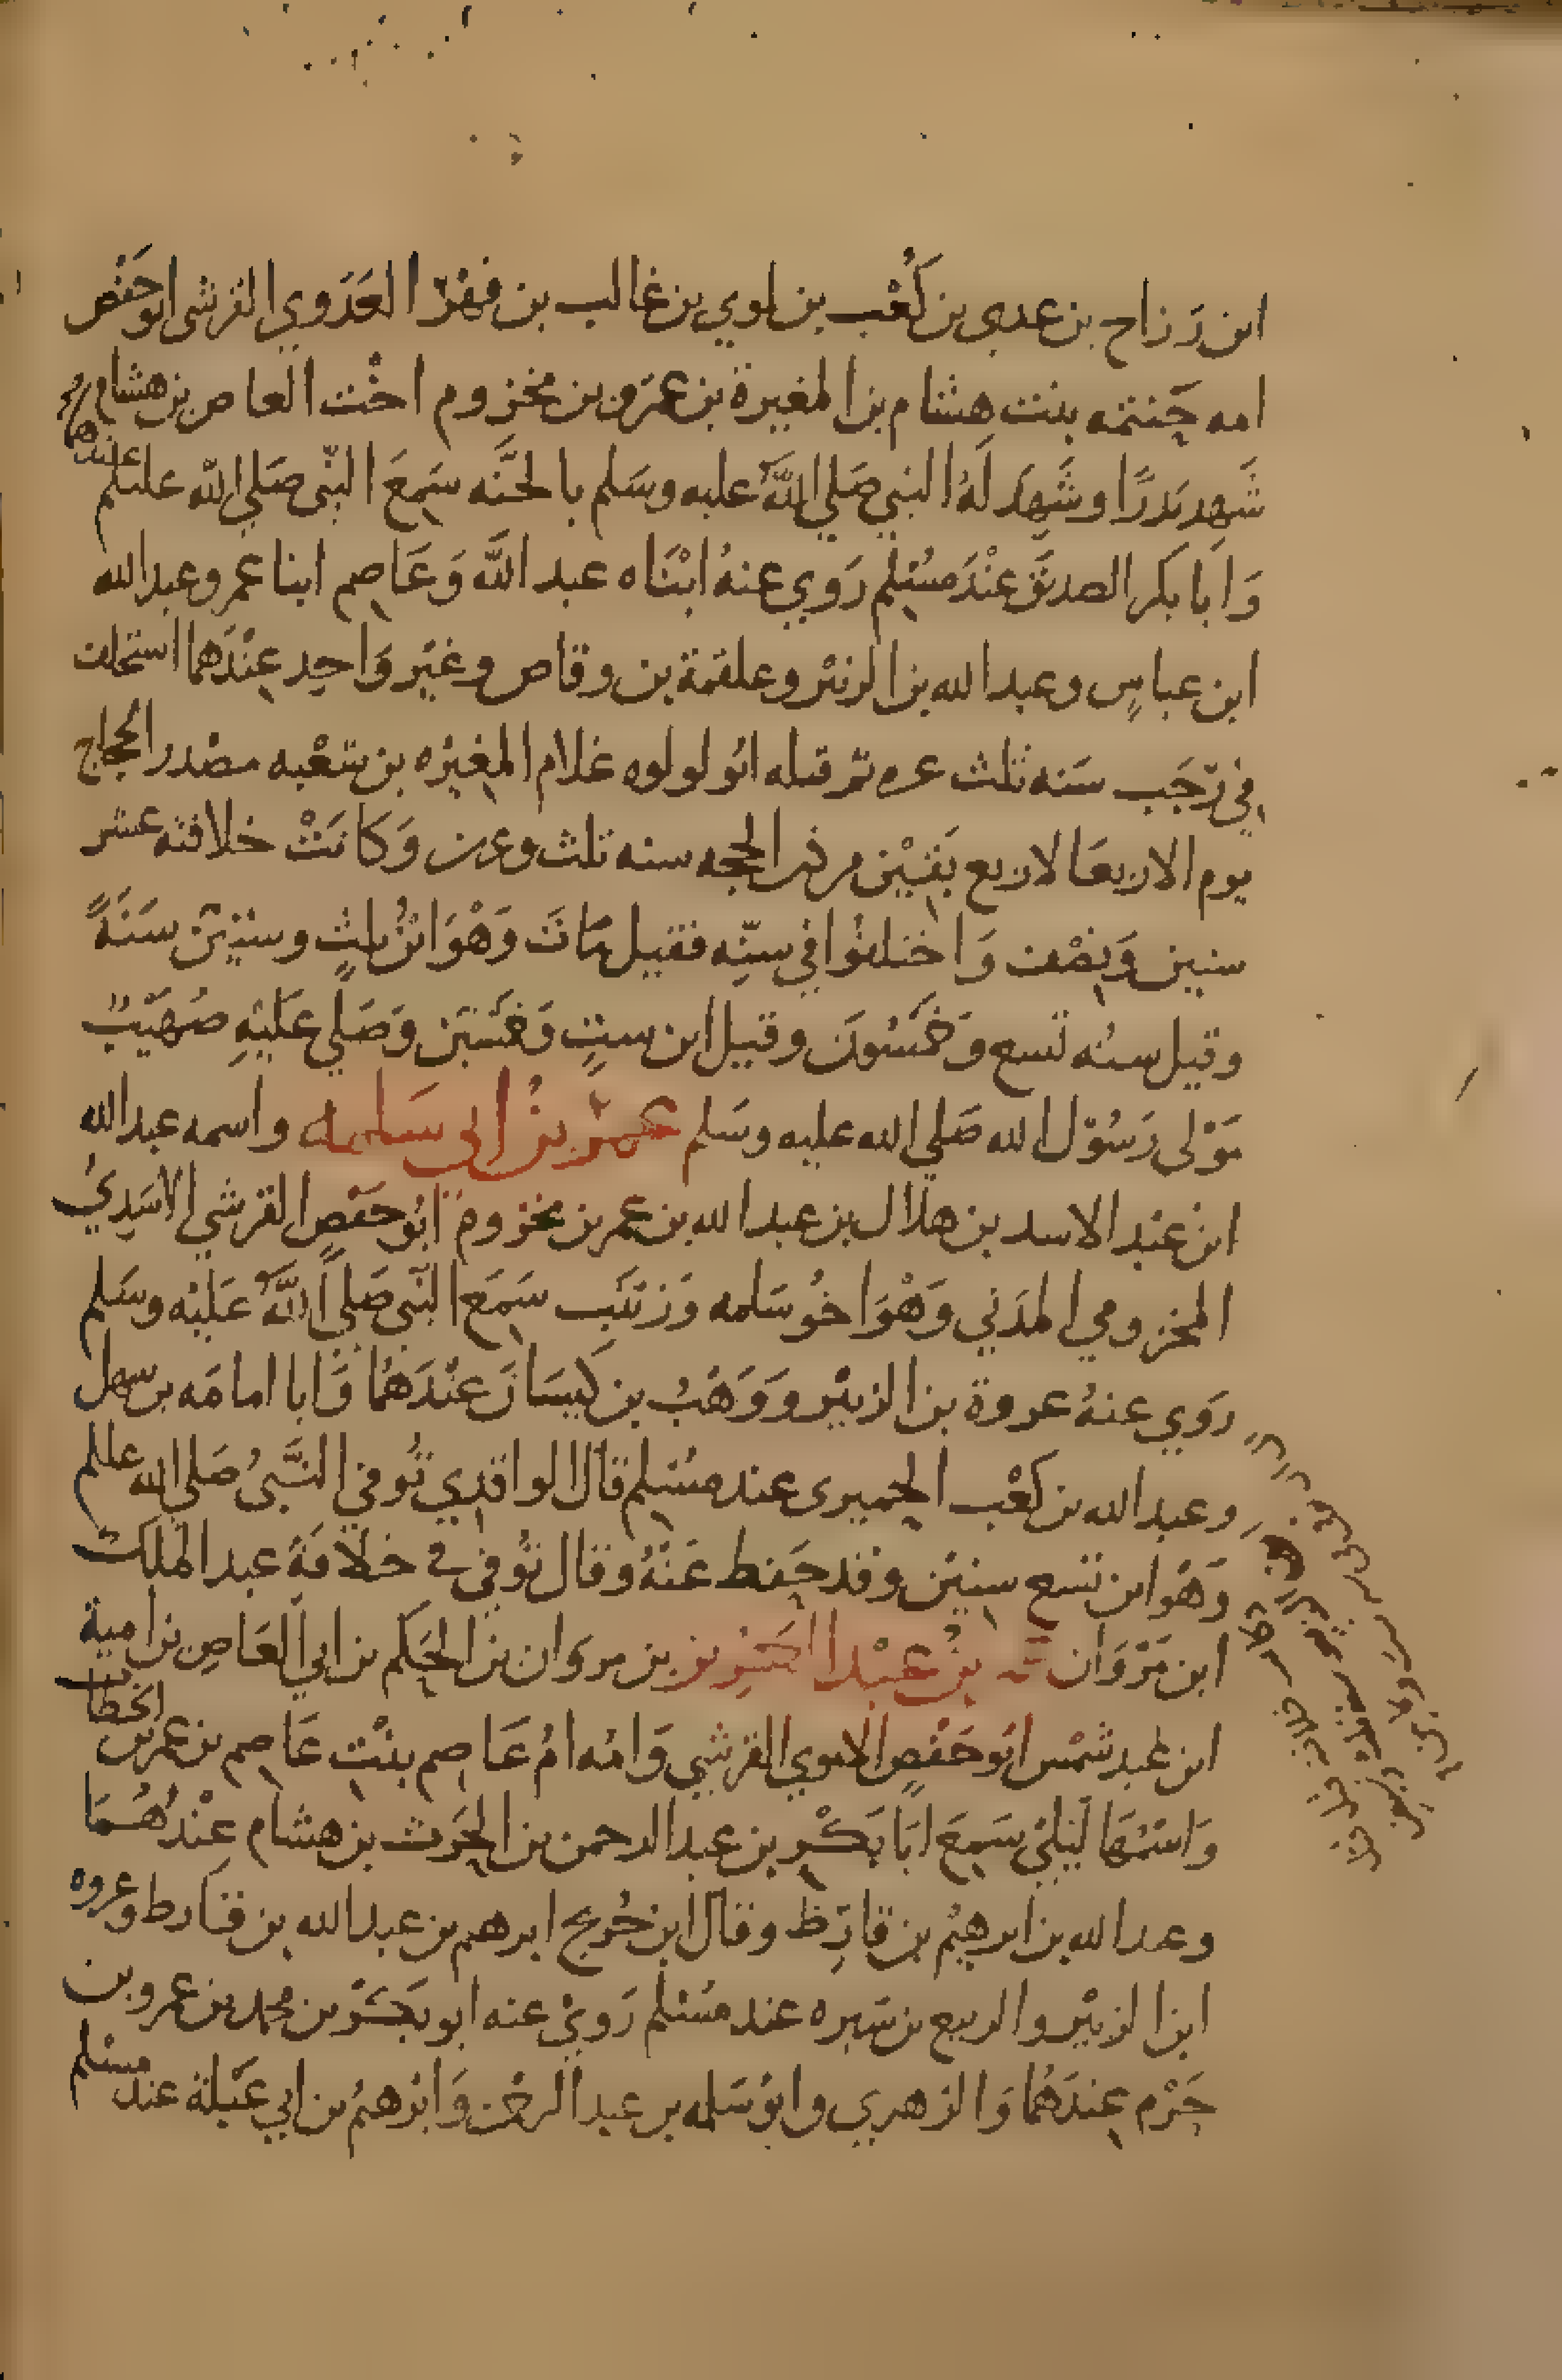 ابن رَزاح بن عدي بن كَعْب بن لوي بن غالب بن فهْر العَدَوي القرشي ابو حَفْص
امه حَنتمه بنت هشام بن المغيرة بن عمَرو بن مخزوم اخْت العاص بن هشام
شَهِد بَدرًا وشَهِدَ لَهُ النبي صَلي اللَّه عليه وسَلم بالجنَّه سَمِعَ النّبي صَلي الله عليسلم عندهما
وَابا بكر الصديق عنْدَ مسْلم رَوي عنهُ ابْنَاه عبد اللَّه وَعَاصِم ابنا عمر وعبد الله
ابن عباسٍ وعبد الله بن الزبير وعلقمة بن وقاص وغيْر وَاحِد عِنْدَهما استخلف
في رَجَب سَنه ثلث عره ثم قتله ابُو لولوه غلام المغيْره بن شعْبه مصْدر الحجاج
يوم الاربعَا لاربع بَقيْن من ذي الحجه سنه ثلث وعرن وَكَانَتْ خلافته عشر
سنين وَنِصْف وَاختلفُوا في سنّه فقيل مَاتَ وَهْوَ ابْنُ ثلثٍ وستيْن سَنَةً
وقيل سنُه تسع وَخمسُونَ وقيل ابن ستٍ وَخمَسيَن وَصَلي عَليْهِ صُهَيْبٌ
مَوْلى رَسُوْل الله صَلي الله عليه وسَلم عمَرُ بنُ ابي سَلمه واسمه عبد الله
ابن عبْد الاسد بن هلال بن عبد الله بن عمر بن مخزوم ابُو حَفْصٍ القرشي الاسَدِيُ
المخزومي المدَني وَهْوَ اخُو سَلمه وَزينَب سَمِعَ النّبي صَلي اللَّه عَليْه وسَلم
رَوي عنهُ عروة بن الزبيْر وَوَهْبُ بن كَيسَانَ عنْدَهمُا وَابا امامَه بن سهل
وعبد الله بن كعْب الحِميري عند مسْلم قال الواقدِي تُوفي النَّبيُ صَلي الله عليلم
وَهْوَ ابن تسع سنيْن وقد حَفِظ عَنْهُ وقال تُوفي في خلافَةِ عبد الملك
ابن مَرْوَان عمر بنُ عبْد العَزِيزِ بن مروان بن الحَكم بن ابي العَاصِ بن امية
ابن عبد شمْس ابُو حَفْصٍ الاموي القرشي وَامُه امُ عَاصِم بنْت عَاصِم بن عمر بن الخطاب
وَاسْمُهَا ليْلي سَمِعَ ابَا بَكْرِ بن عبد الرحمن بن الحَرث بن هشام عِنْدَهُمَا
وعبد الله بن ابرهيْم بن قارِظ وقال ابن جُريج ابرهم بن عبد الله بن قارط وعروه
ابن الزبيْر والربيع بن سَبره عند مسْلم رَويْ عنه ابو بَكْر بن محمد بن عمرو بن
حَزْم عِندَهمُا وَالزهري وابُو سَلمه بن عبد الرحمن وَابْرهيمُ بن ابي عَبْلة عند مسْلم